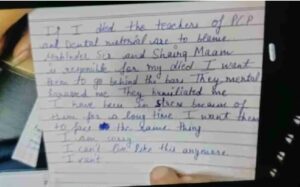 If I died the teachers of PCP
and Dental material are to blame.
Sir and Maam
is responsible for my died I want
them to go behind the bars They mental
me They humiliated me
have been in stress because of
them for a long time I want them
to face the same thing
I am sorry
I can't live like this anymore
I want